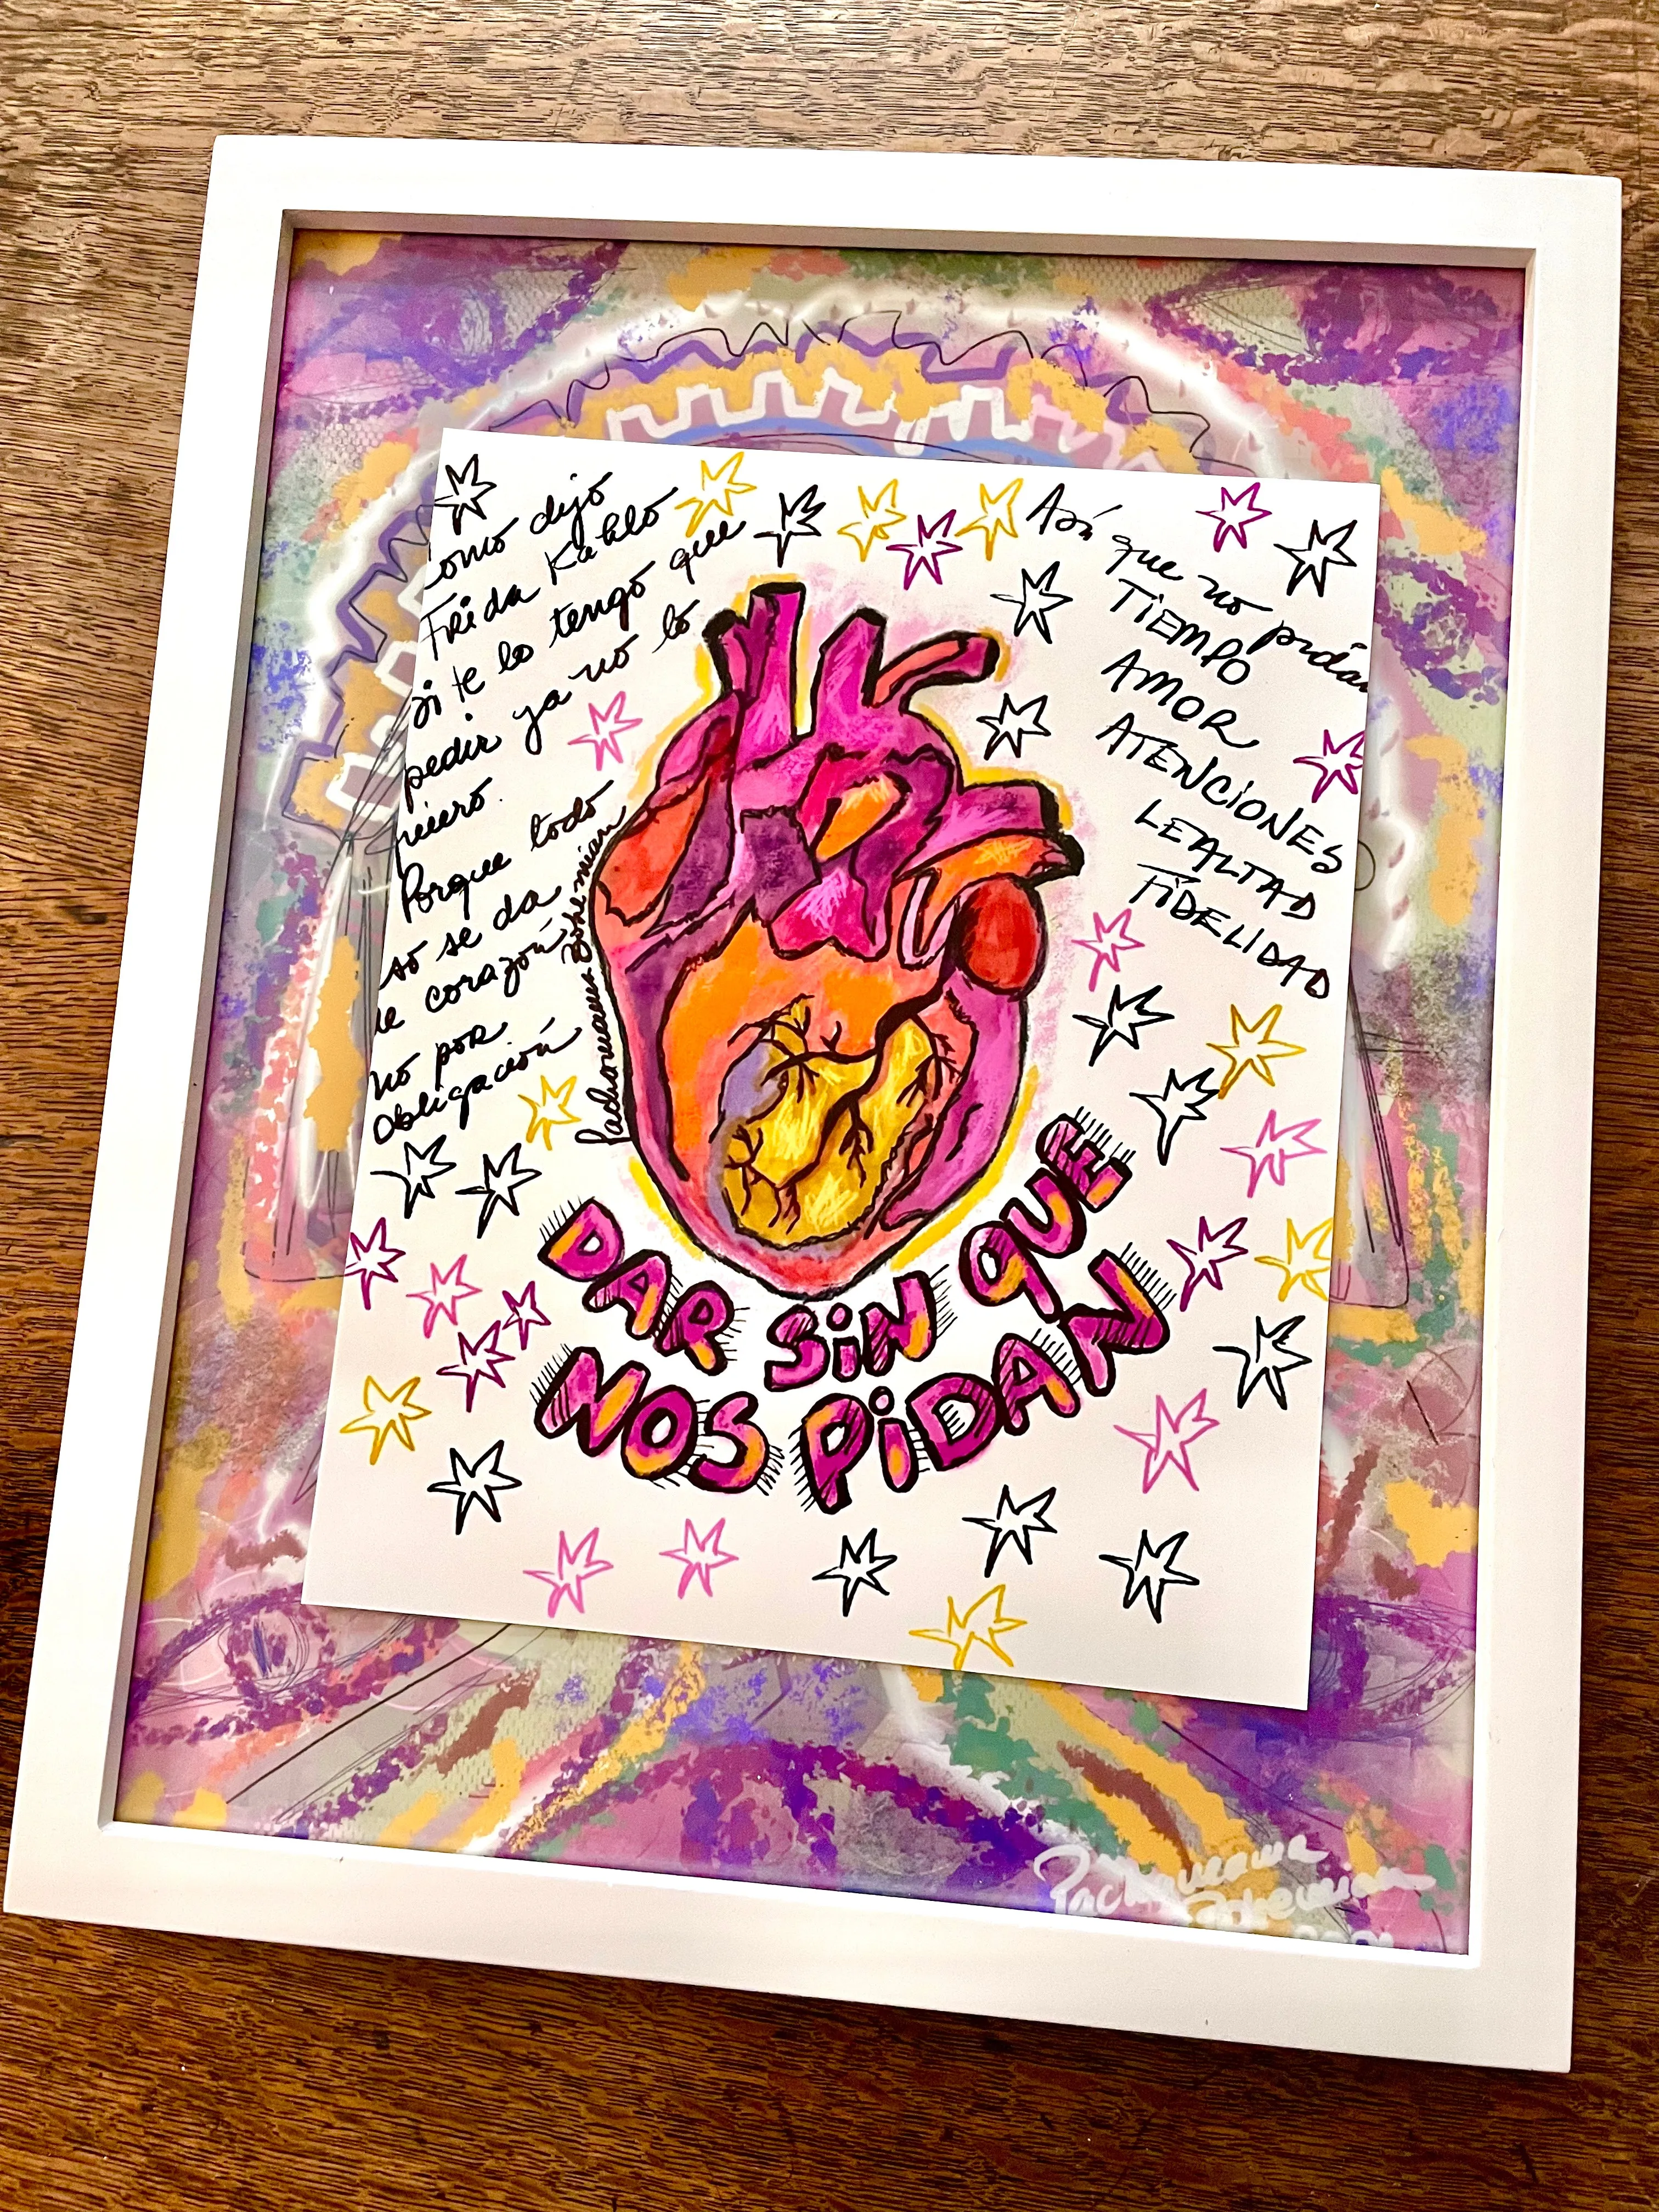 Como dijo
Frida Kahlo
si te lo tengo que
pedir ya no lo
quiero.
Porque todo
so se da
de corazón
no por
obligación
Pachomama Bohemian
Así que no pidan
TIEMPO
AMOR
ATENCIONES
LEALTAD
FIDELIDAD
DAR SiN QUE
NOS PiDAN
Bohemian